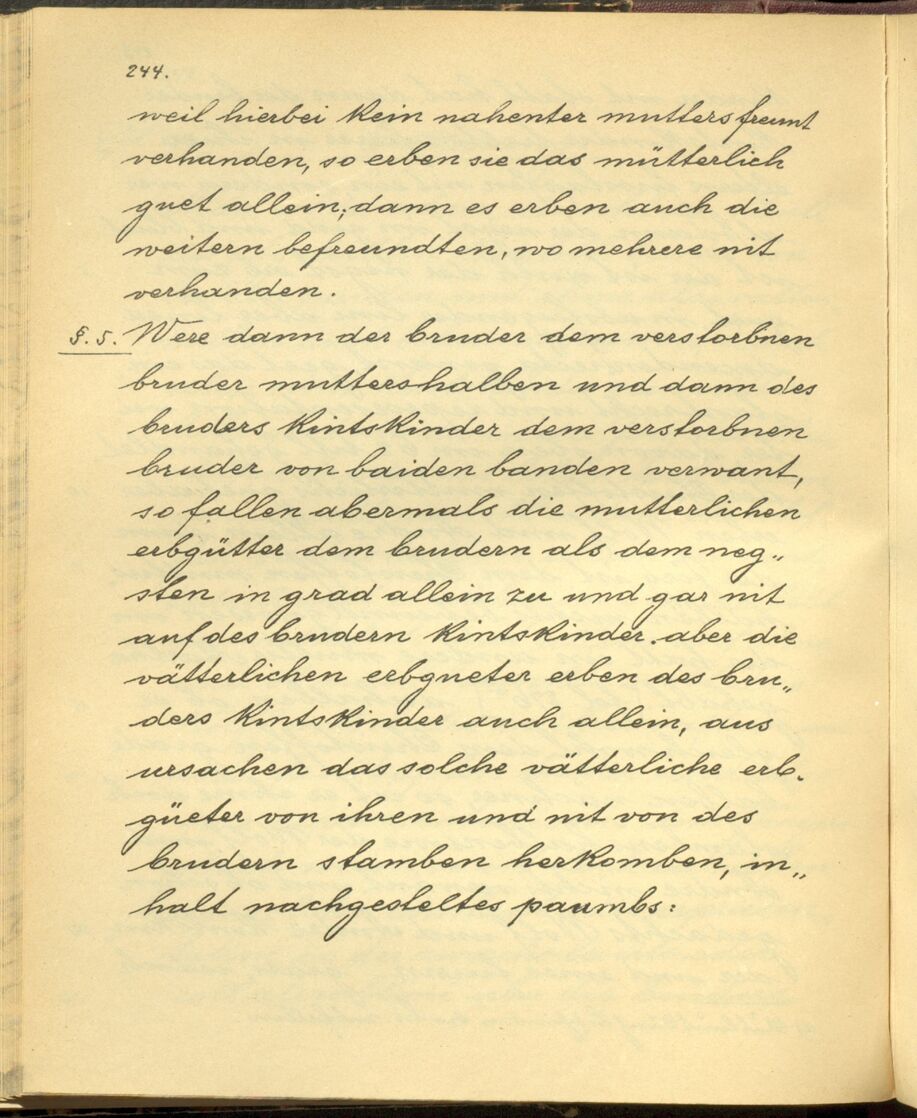 244.
weil hierbei kein nahenter mutters freunt
verhanden, so erben sie das mütterlich
guet allein; dann es erben auch die
weitern befreundten, wo mehrere nit
verhanden.
§. 5. Were dann der bruder dem verstorbnen
bruder muttershalben und dann des
bruders kintskinder dem verstorbnen
bruder von baiden banden verwant,
so fallen abermals die mutterlichen
erbgütter dem brudern als dem neg„
sten in grad allein zu und gar nit
auf des brudern kintskinder. aber die
vätterlichen erbgueter erben des bru„
ders kintskinder auch allein, aus
ursachen das solche vätterliche erb„
güeter von ihren und nit von des
brudern stamben herkomben, in„
halt nachgesteltes paumbs: